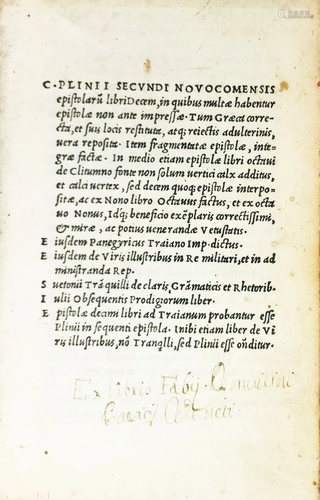 C. PLINII SECVNDI NOVOCOMENSIS
epistolarũ libri Decem, in quibus multæ habentur
epistolæ non ante impressæ. Tum Græca corre-
cta, et suis locis restituta, atq; reiectis adulterinis,
uera reposita. Item fragmentatæ epistolæ, inte-
græ factæ. In medio etiam epistolæ libri octaui
de Clitumno fonte non solum uertici calx additus,
et calci uertex, sed decem quoq; epistolæ interpo-
sitæ, ac ex Nono libro Octauus factus, et ex octa
uo Nonus, Idq; beneficio exẽplaris correctissimi,
& miræ, ac potius uenerandæ Vetustatis.
E iusdem Panegyricus Traiano Imp. dictus.
E iusdem de Viris illustribus in Re militari, et in ad
ministranda Rep.
S uetonii Trãquilli de claris, Grãmaticis et Rhetorib.
I ulii Obsequentis Prodigiorum liber.
E pistolæ decimi libri ad Traianum probantur esse
Plinii in sequenti epistola. Inibi etiam liber de Vi
ris illustribus, nõ Tranq̃lli, sed Plinii esse oñditur.
Ex Libris
Veneti.